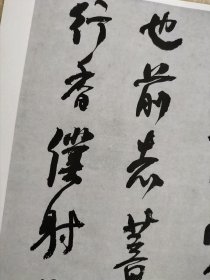 也前者菩
行香僕射